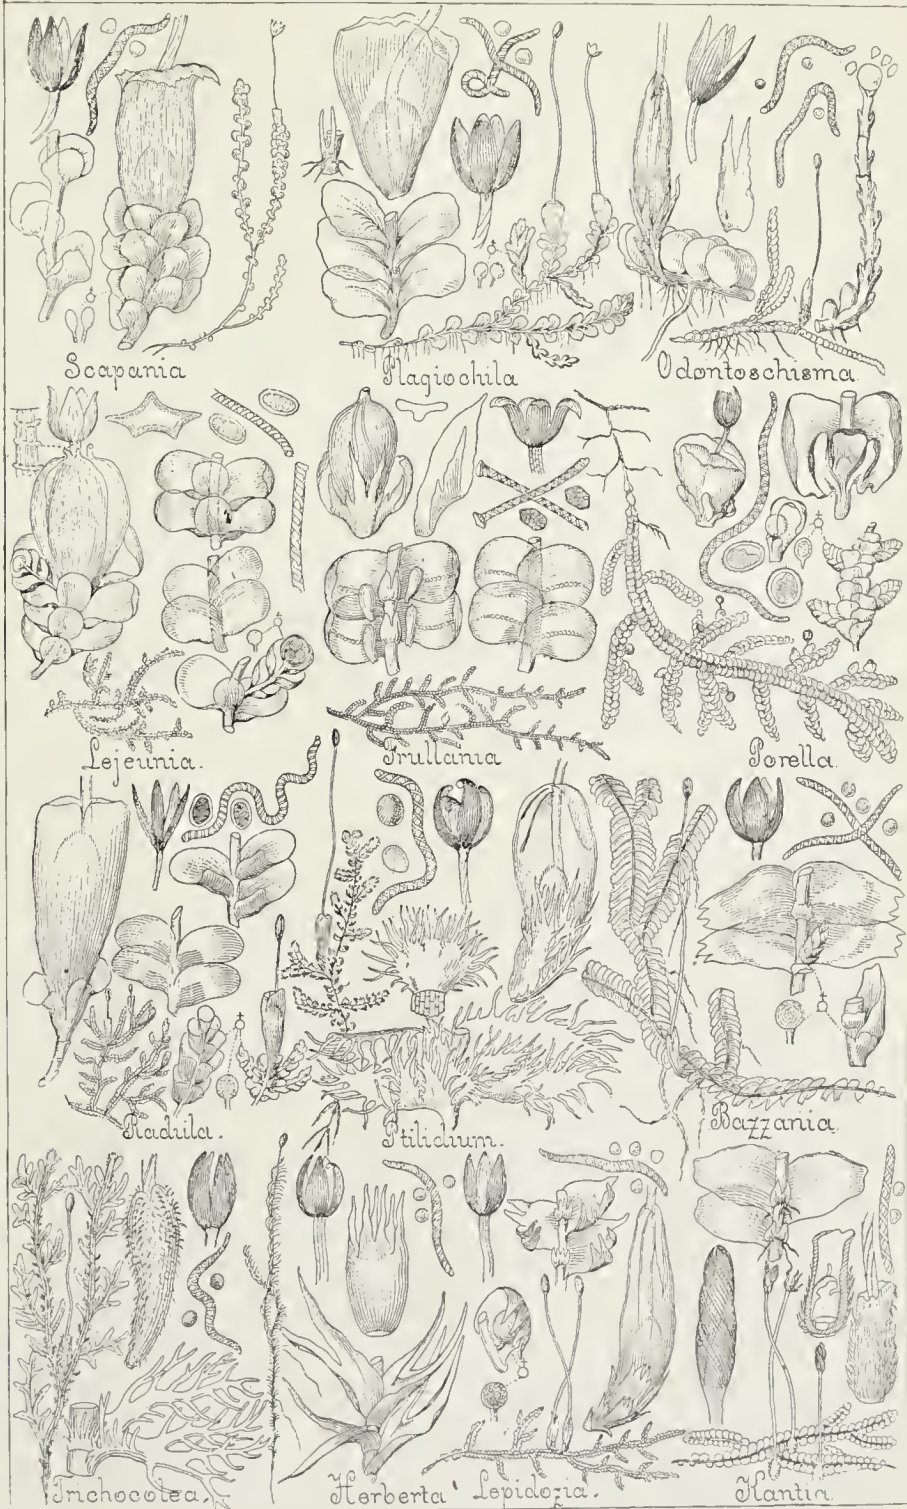 Scapania Plagiochila Odontoschisma.
Lejeunia. Frullania Porella.
Radula. Ptilidium. Bazzania
Trichocolea. Herberta Lepidozia. Kantia